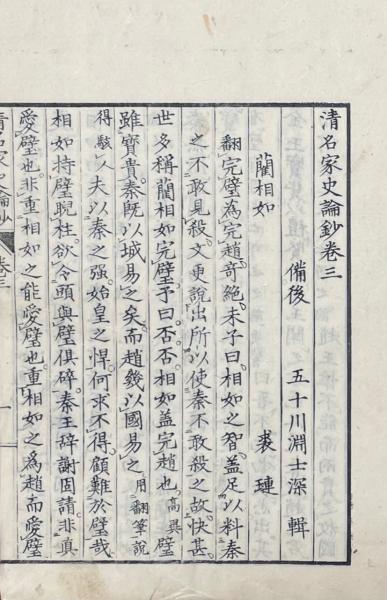 清名家史論鈔卷三
備後　五十川淵士深　輯
藺相如　裘璉
翻完璧為完趙奇絕朱子曰相如之智蓋足以料秦
之不敢見殺文更說出所以使秦不敢殺之故快甚
世多稱藺相如完璧予曰否否相如蓋完趙也高異璧
雖寶貴秦既以城易之矣而趙幾以國易之用翻筆說
得駭人夫以秦之强始皇之悍何求不得顧難於璧哉
相如持璧睨柱欲令頭與璧俱碎秦王辭謝固請非真
愛璧也非重相如之能愛璧也重相如之為趙而愛璧
清名家史論鈔 卷三